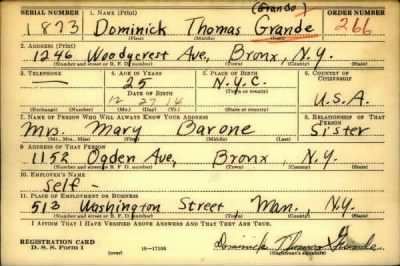 SERIAL NUMBER 1. NAME (Print) (Grando) ORDER NUMBER
1873 Dominick Thomas Grande 266
(First) (Middle) (Last)
2. ADDRESS (Print)
1246 Woodycrest Ave, Bronx, N.Y.
(Number and street or R. F. D. number) (Town) (County) (State)
3. TELEPHONE 4. AGE IN YEARS 5. PLACE OF BIRTH 6. COUNTRY OF CITIZENSHIP
25 N.Y.C.
DATE OF BIRTH (Town or county)
12 27 14 U.S.A.
(Exchange) (Number) (Mo.) (Day) (Yr.) (State or country)
7. NAME OF PERSON WHO WILL ALWAYS KNOW YOUR ADDRESS 8. RELATIONSHIP OF THAT PERSON
Mrs. Mary Barone Sister
(Mr., Mrs., Miss) (First) (Middle) (Last)
9. ADDRESS OF THAT PERSON
1152 Ogden Ave, Bronx, N.Y.
(Number and street or R. F. D. number) (Town) (County) (State)
10. EMPLOYER'S NAME
Self -
11. PLACE OF EMPLOYMENT OR BUSINESS
513 Washington Street Man. N.Y.
(Number and street or R. F. D. number) (Town) (County) (State)
I AFFIRM THAT I HAVE VERIFIED ABOVE ANSWERS AND THAT THEY ARE TRUE.
REGISTRATION CARD
D. S. S. Form 1 (over) 16-17105 Dominick Thomas Grande
(Registrant's signature)